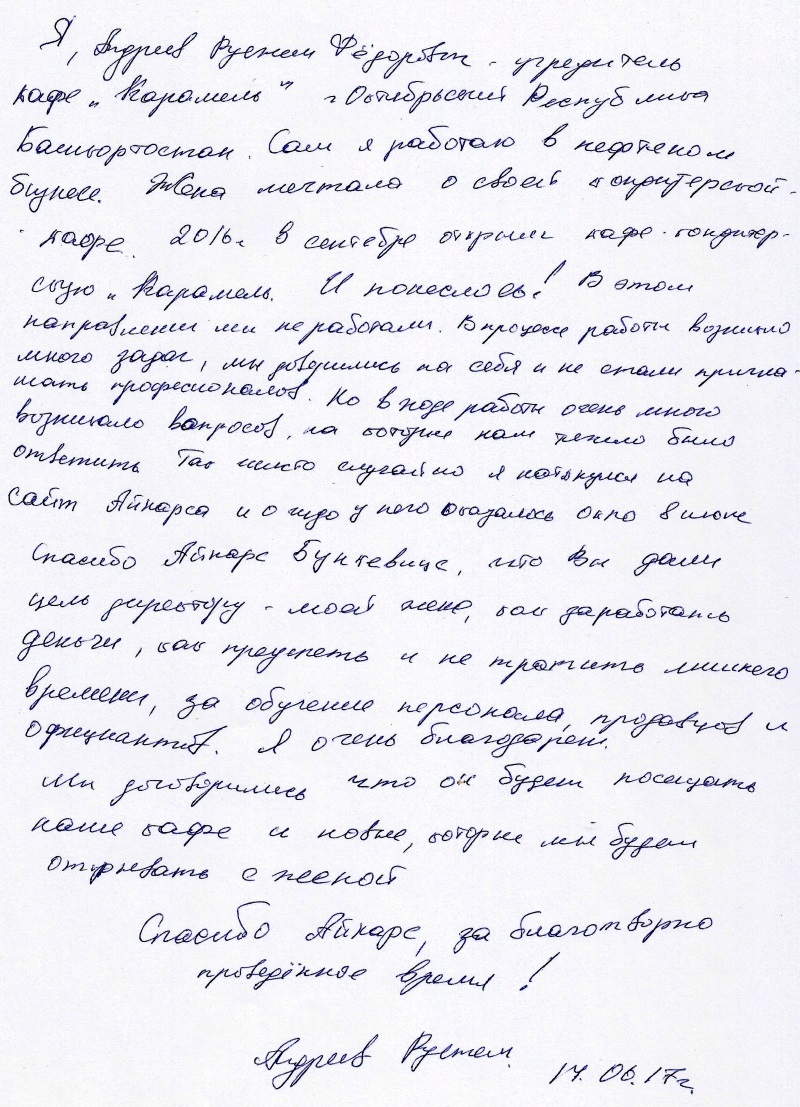 Я, Андреев Рустем Фёдорович - учредитель
кафе „Карамель" г Октябрьский Республика
Башкортостан. Сам я работаю в нефтеном
бизнесе. Жена мечтала о своей кондитерской-
кафе. 2016г в сентебре открыли кафе-кондитер-
скую „Карамель. И понеслось! В этом
направлении мы не работали. В процессе работы возникло
много задач, мы доверились на себя и не стали пригла-
шать професионалов. Но в ходе работы очень много
возникало вопросов, на которые нам тяжело было
ответить Так чисто случайно я наткнулся на
сайт Айнарса и о чудо у него оказалось окно в июне
Спасибо Айнарс Бункевице, что Вы дали
цель директору - моей жене, как заработать
деньги, как преуспеть и не тратить лишнего
времени, за обучение персонала, продавцов и
официантов. Я очень благодарен.
Мы договорились что он будет посещать
наше кафе и новые, которые мы будем
открывать с женой
Спасибо Айнарс, за благотворно
проведённое время!
Андреев Рустем. 14.06.17г.